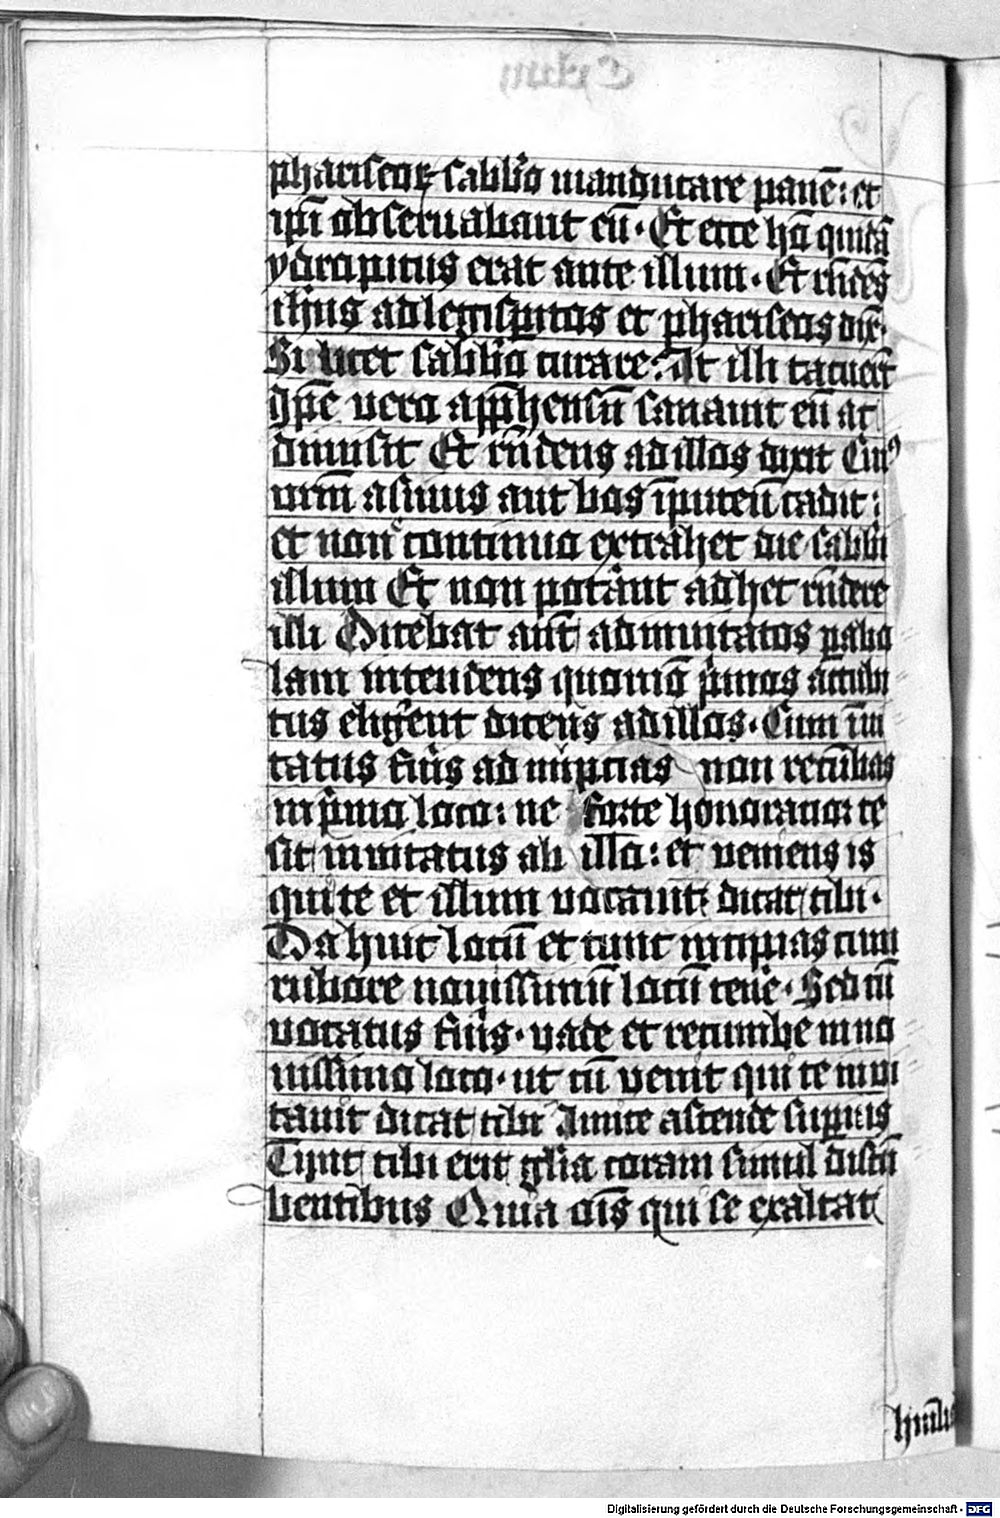 phariseoꝝ sabb̄o manducare panē: et
ip̄i obseruabant eū. Et ecce hō quidā
ydropicus erat ante illum. Et rn̄dēs
ih̄us ad legisꝑitos et phariseos dix̄.
Si licet sabb̄o curare: At illi tacuer̄t
Ip̄e vero app̄hensū sanauit eū ac
dimisit Et rn̄dens ad illos dixit Cuiꝰ
vrm̄ asinus aut bos ī puteū cadit:
et non continuo extrahet die sabbi
illum Et non potāt ad hec rn̄dere
illi Dicebat aūt ad inuitatos ꝑabo
lam intendens quomō p̄mos accubi
tus elig̓ent dicens ad illos. Cum īui
tatus fu̓is ad nupcias non recūbas
in p̄mo loco: ne forte honoratior te
sit inuitatus ab illo: et veniens is
qui te et illum vocauit: dicat tibi.
Da huic locū et tunc incipias cum
rubore nouissimū locū ten̄e. Sed cū
vocatus fu̓is. vade et recumbe in no
uissimo loco. ut cū venit qui te inui
tauit dicat tibi Amice ascende supius
Tunc tibi erit gl̄ia coram simul discū
bentibus Quia oīs qui se exaltat